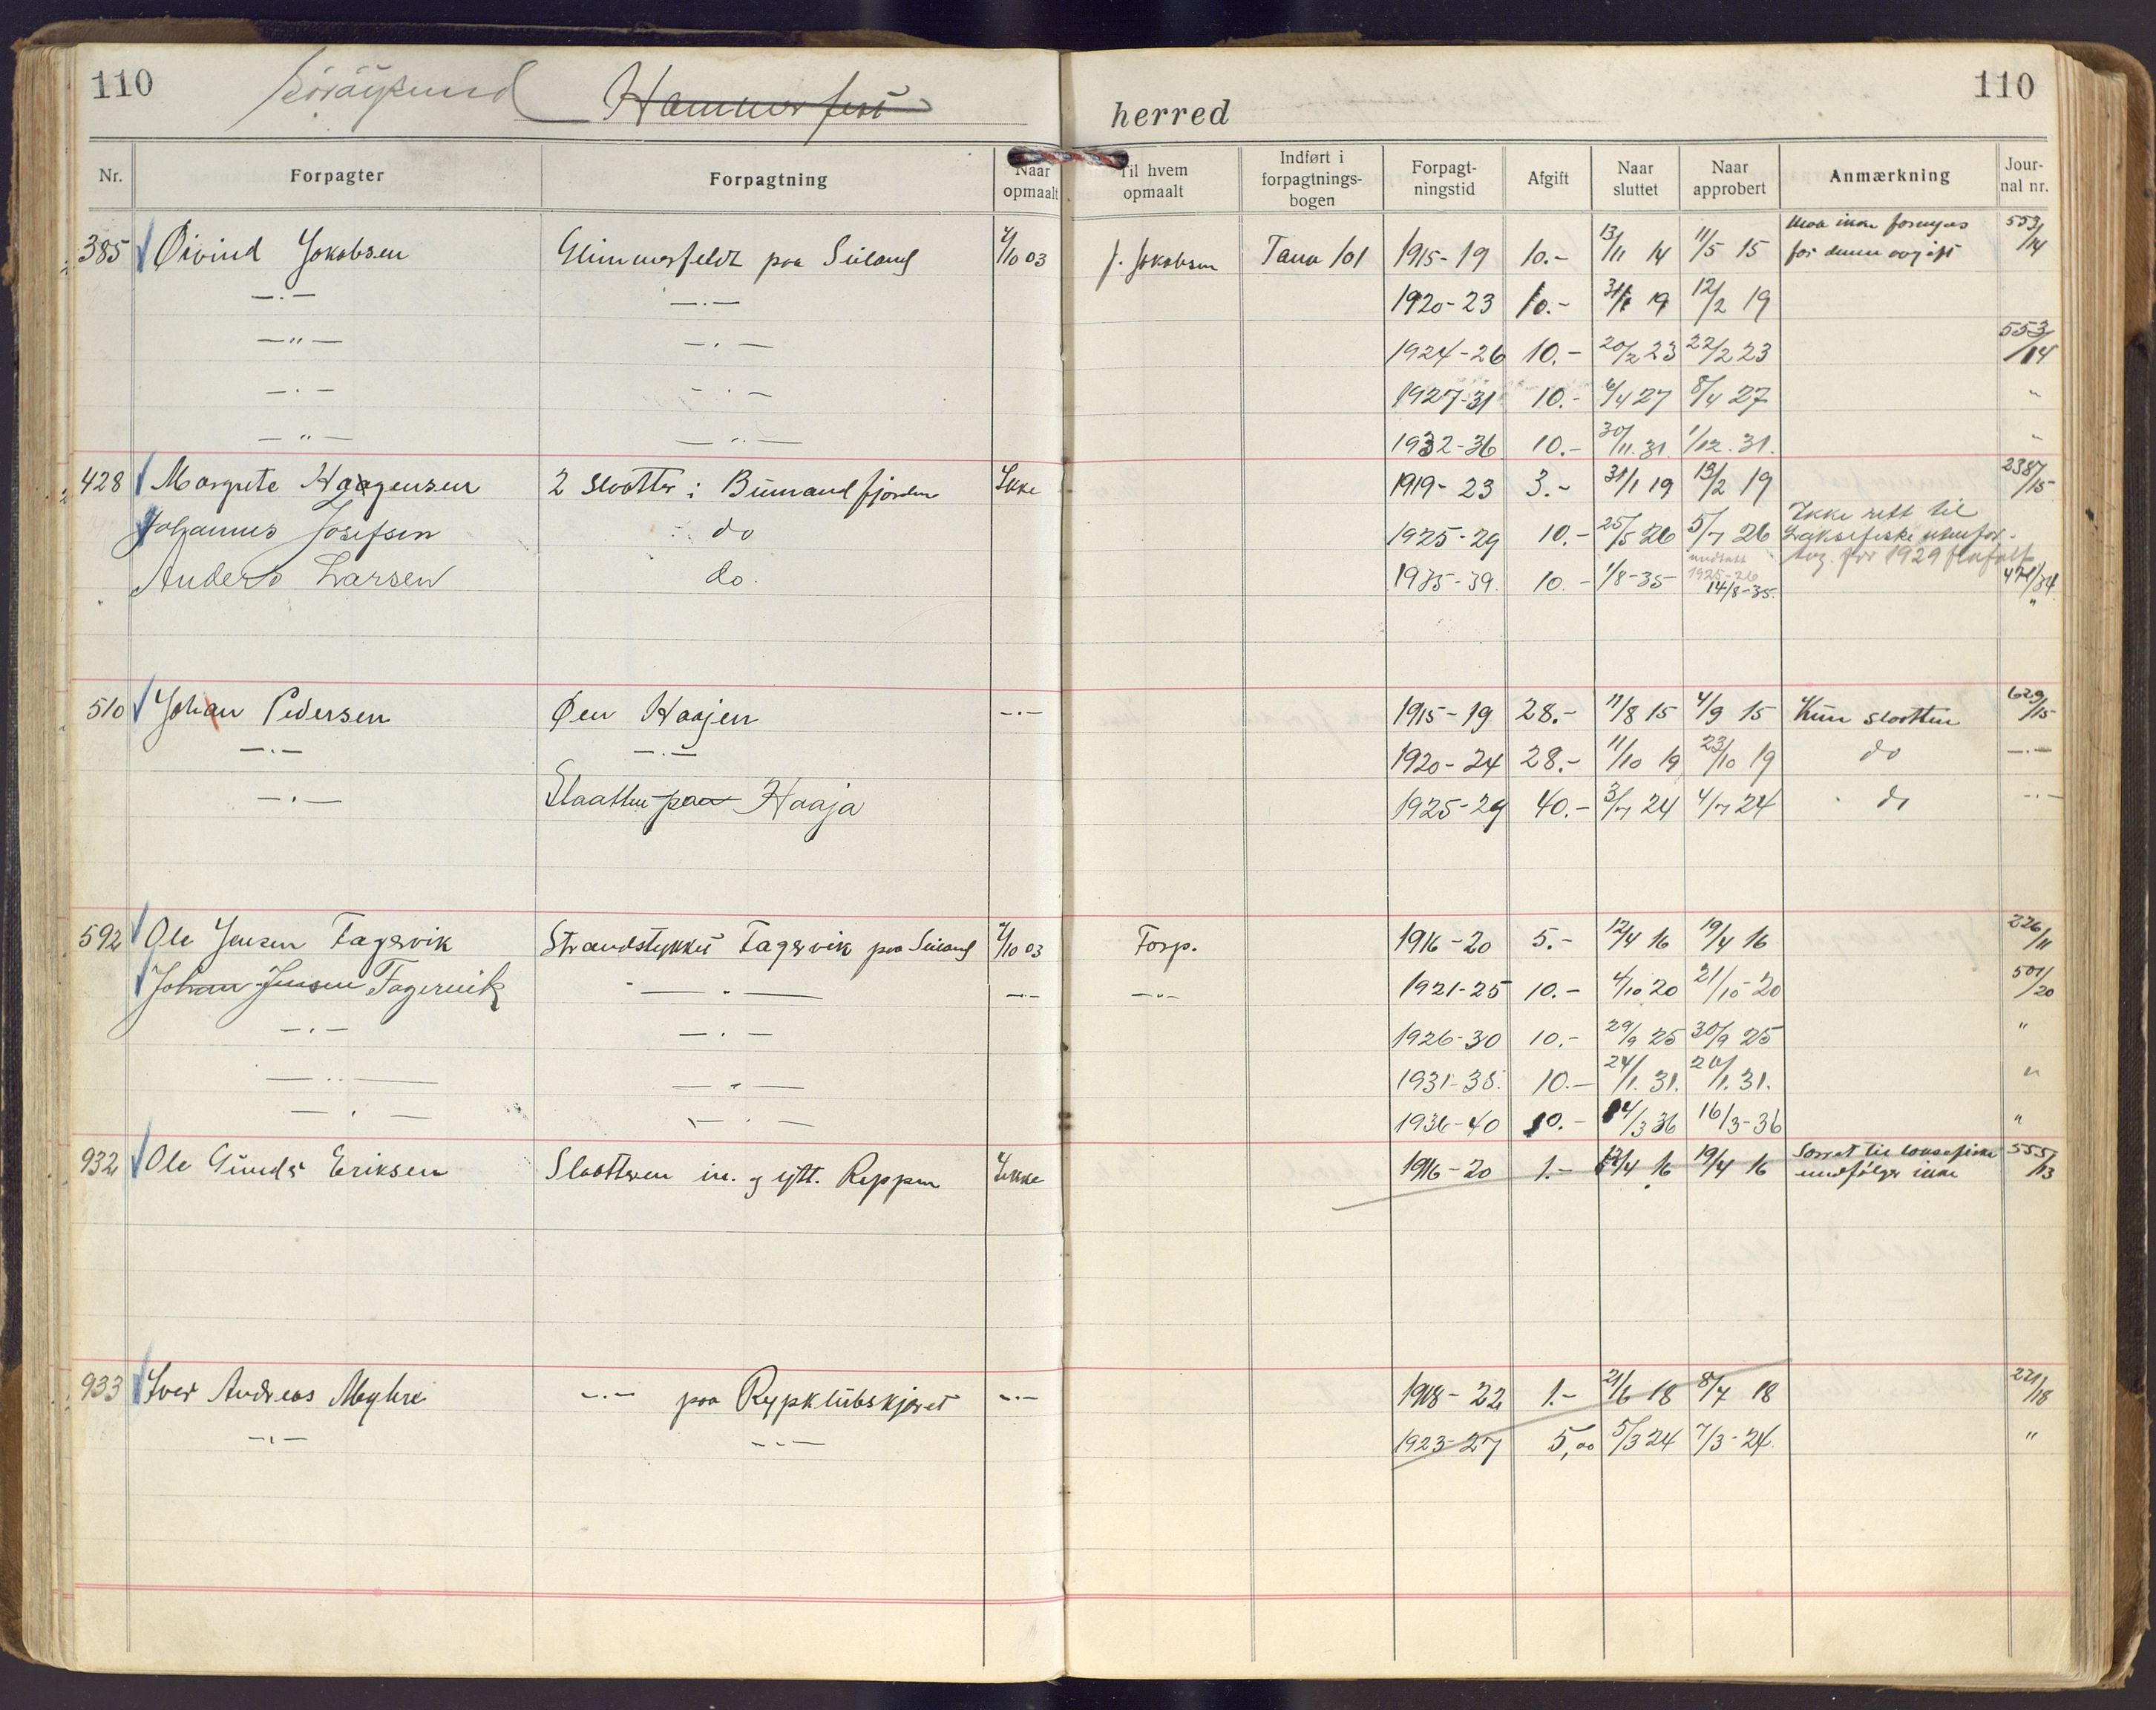 110 Sørøysund Hammerfest herred 110
Nr. Forpagter Forpagtning Naar opmaalt Til hvem opmaalt Indført i forpagtnings-bogen Forpagt-ningstid Afgift Naar sluttet Naar approbert Anmærkning Jour-nal nr.
385 Øivind Jakobsen Glimmerfeldt paa Seiland 2/10 03 J. Jakobsen Tana 101 1915-19 10.- 13/11 14 11/5 15 Maa ikke fornyes for denne avgift 553/14
—.— —.— 1920-23 10.- 31/1 19 12/2 19
—"— —.— 1924-26 10.- 20/2 23 22/2 23 553/14
—.— —.— 1927-31 10.- 6/4 27 8/4 27 "
—"— —"— 1932-36 10.- 30/11.31. 1/12.31. "
428 Margrete Haagensen 2 slaatter i Bumandfjorden Ikke 1919-23 3.- 31/1 19 13/2 19 2387/15
Johannes Josefsen do 1925-29 10.- 25/5 26 5/7 26 Ikke rett til Laksefiske utenfor.
Anders Larsen do. 1935-39. 10.- 1/8-35 undtatt 1925-26 14/8-35. for 1929 471/34 "
510 Johan Pedersen Øen Haajen —.— 1915-19 28.- 11/8 15 4/9 15 Kun slaatten 629/15
—.— —.— 1920-24 28.- 11/10 19 23/10 19 do —.—
—.— Slaatten paa Haaja 1925-29 40.- 3/7 24 4/7 24 do —.—
592 Ole Jensen Fagervik Strandstykket Fagervik paa Seiland 2/10 03 Forp. 1916-20 5.- 12/4 16 19/4 16 226/11
Johan Jensen Fagervik —.— —.— —"— 1921-25 10.- 4/10 20 21/10-20 501/20
—.— —.— 1926-30 10.- 29/9 25 30/9 25 "
—..— —"— 1931-35. 10.- 24/1.31. 26/1.31. "
—.— —.— 1936-40 10.- 14/3 36 16/3-36 "
932 Ole Gunder Eriksen Slaatten in. og ytt. Reppen Ikke 1916-20 1.- 12/4 16 19/4 16 Forret til laksefiske medfølger ikke 555/13
933 Iver Andreas Myhre —.— paa Rypklubskjæret —.— 1918-22 1.- 21/6 18 8/7 18 221/18
—.— —"— 1923-27 5,00 5/3 24 7/3-24. "